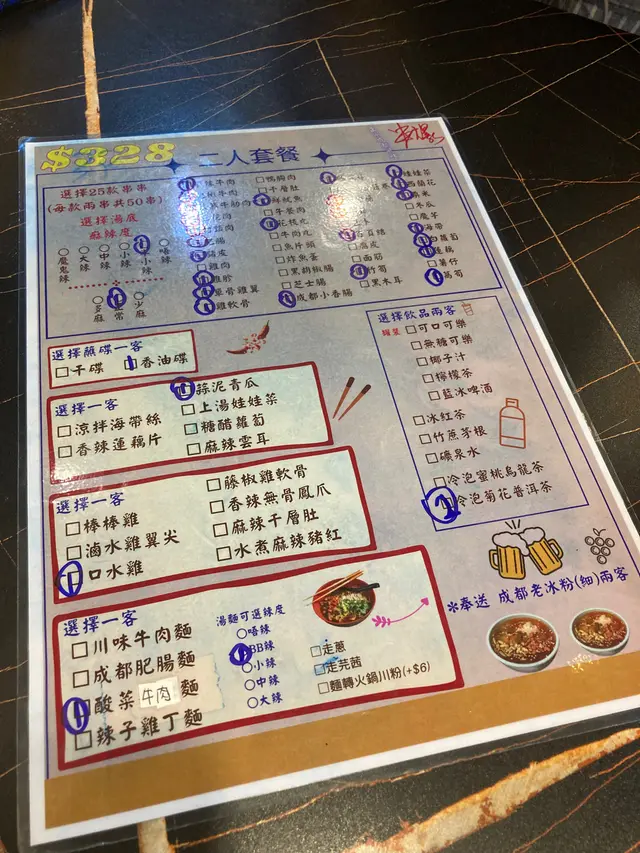 $328
二人套餐
選擇25款串串
(每款兩串共50串)
選擇湯底
麻辣度
魔鬼辣
大辣
中辣
小辣
小辣
唔辣
多麻
正常
少麻
牛肉
花肉
雞肉
雞胗
單骨雞翼
雞軟骨
鴨胸肉
千層肚
鮮魷魚
牛栢肉
花枝丸
牛肉丸
魚片頭
炸魚蛋
黑胡椒腸
芝士腸
成都小香腸
腐皮
面筋
竹筍
黑木耳
娃娃菜
西蘭花
冬瓜
魔芋
海帶
白蘿蔔
蓮藕
薯仔
萵筍
選擇蘸碟一客
干碟
香油碟
選擇一客
涼拌海帶絲
香辣蓮藕片
蒜泥青瓜
上湯娃娃菜
糖醋蘿蔔
麻辣雲耳
選擇一客
棒棒雞
滷水雞翼尖
口水雞
藤椒雞軟骨
香辣無骨鳳爪
麻辣千層肚
水煮麻辣豬紅
選擇一客
川味牛肉麵
成都肥腸麵
酸菜牛肉麵
辣子雞丁麵
湯麵可選辣度
唔辣
BB辣
小辣
中辣
大辣
走蔥
走芫茜
麵轉火鍋川粉(+$6)
選擇飲品兩客
罐裝
可口可樂
無糖可樂
椰子汁
檸檬茶
藍冰啤酒
冰紅茶
竹蔗茅根
礦泉水
冷泡蜜桃烏龍茶
冷泡菊花普洱茶
*奉送 成都老冰粉(細)兩客